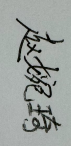 赵婉琦